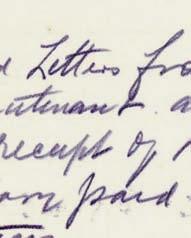 d Letters fro
eutenant a
receipt of
paid